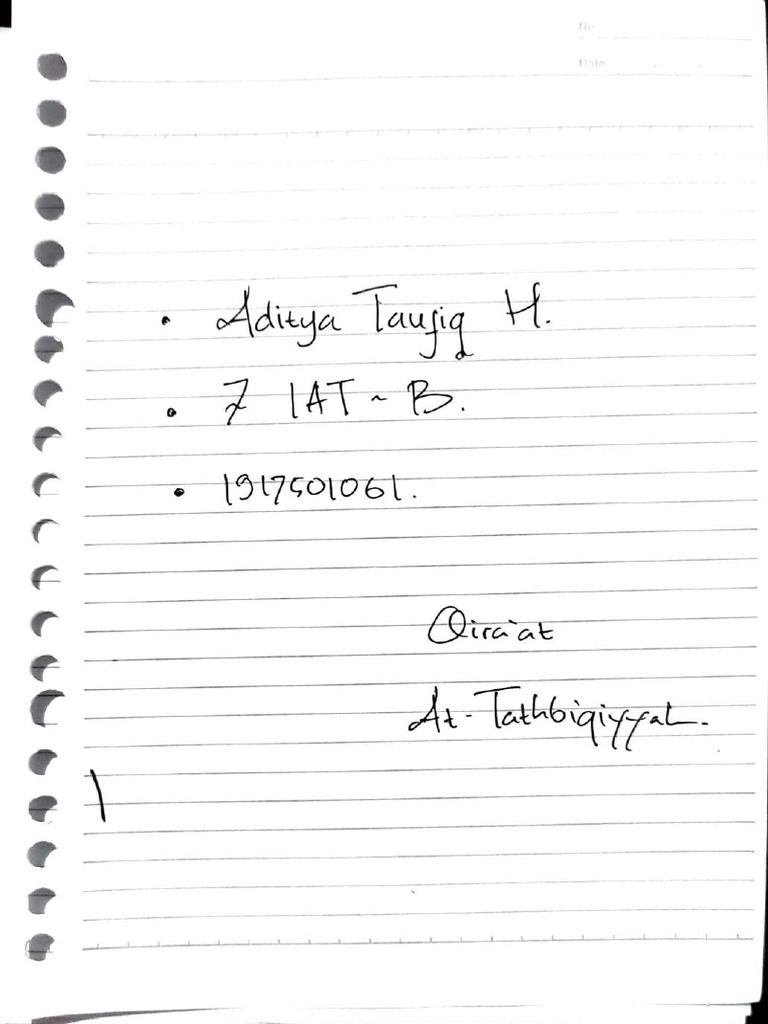 No
Date
• Aditya Taufiq H.
• 7 IAT ~ B.
• 1917501061.
Qira'at
At-Tathbiqiyyah.